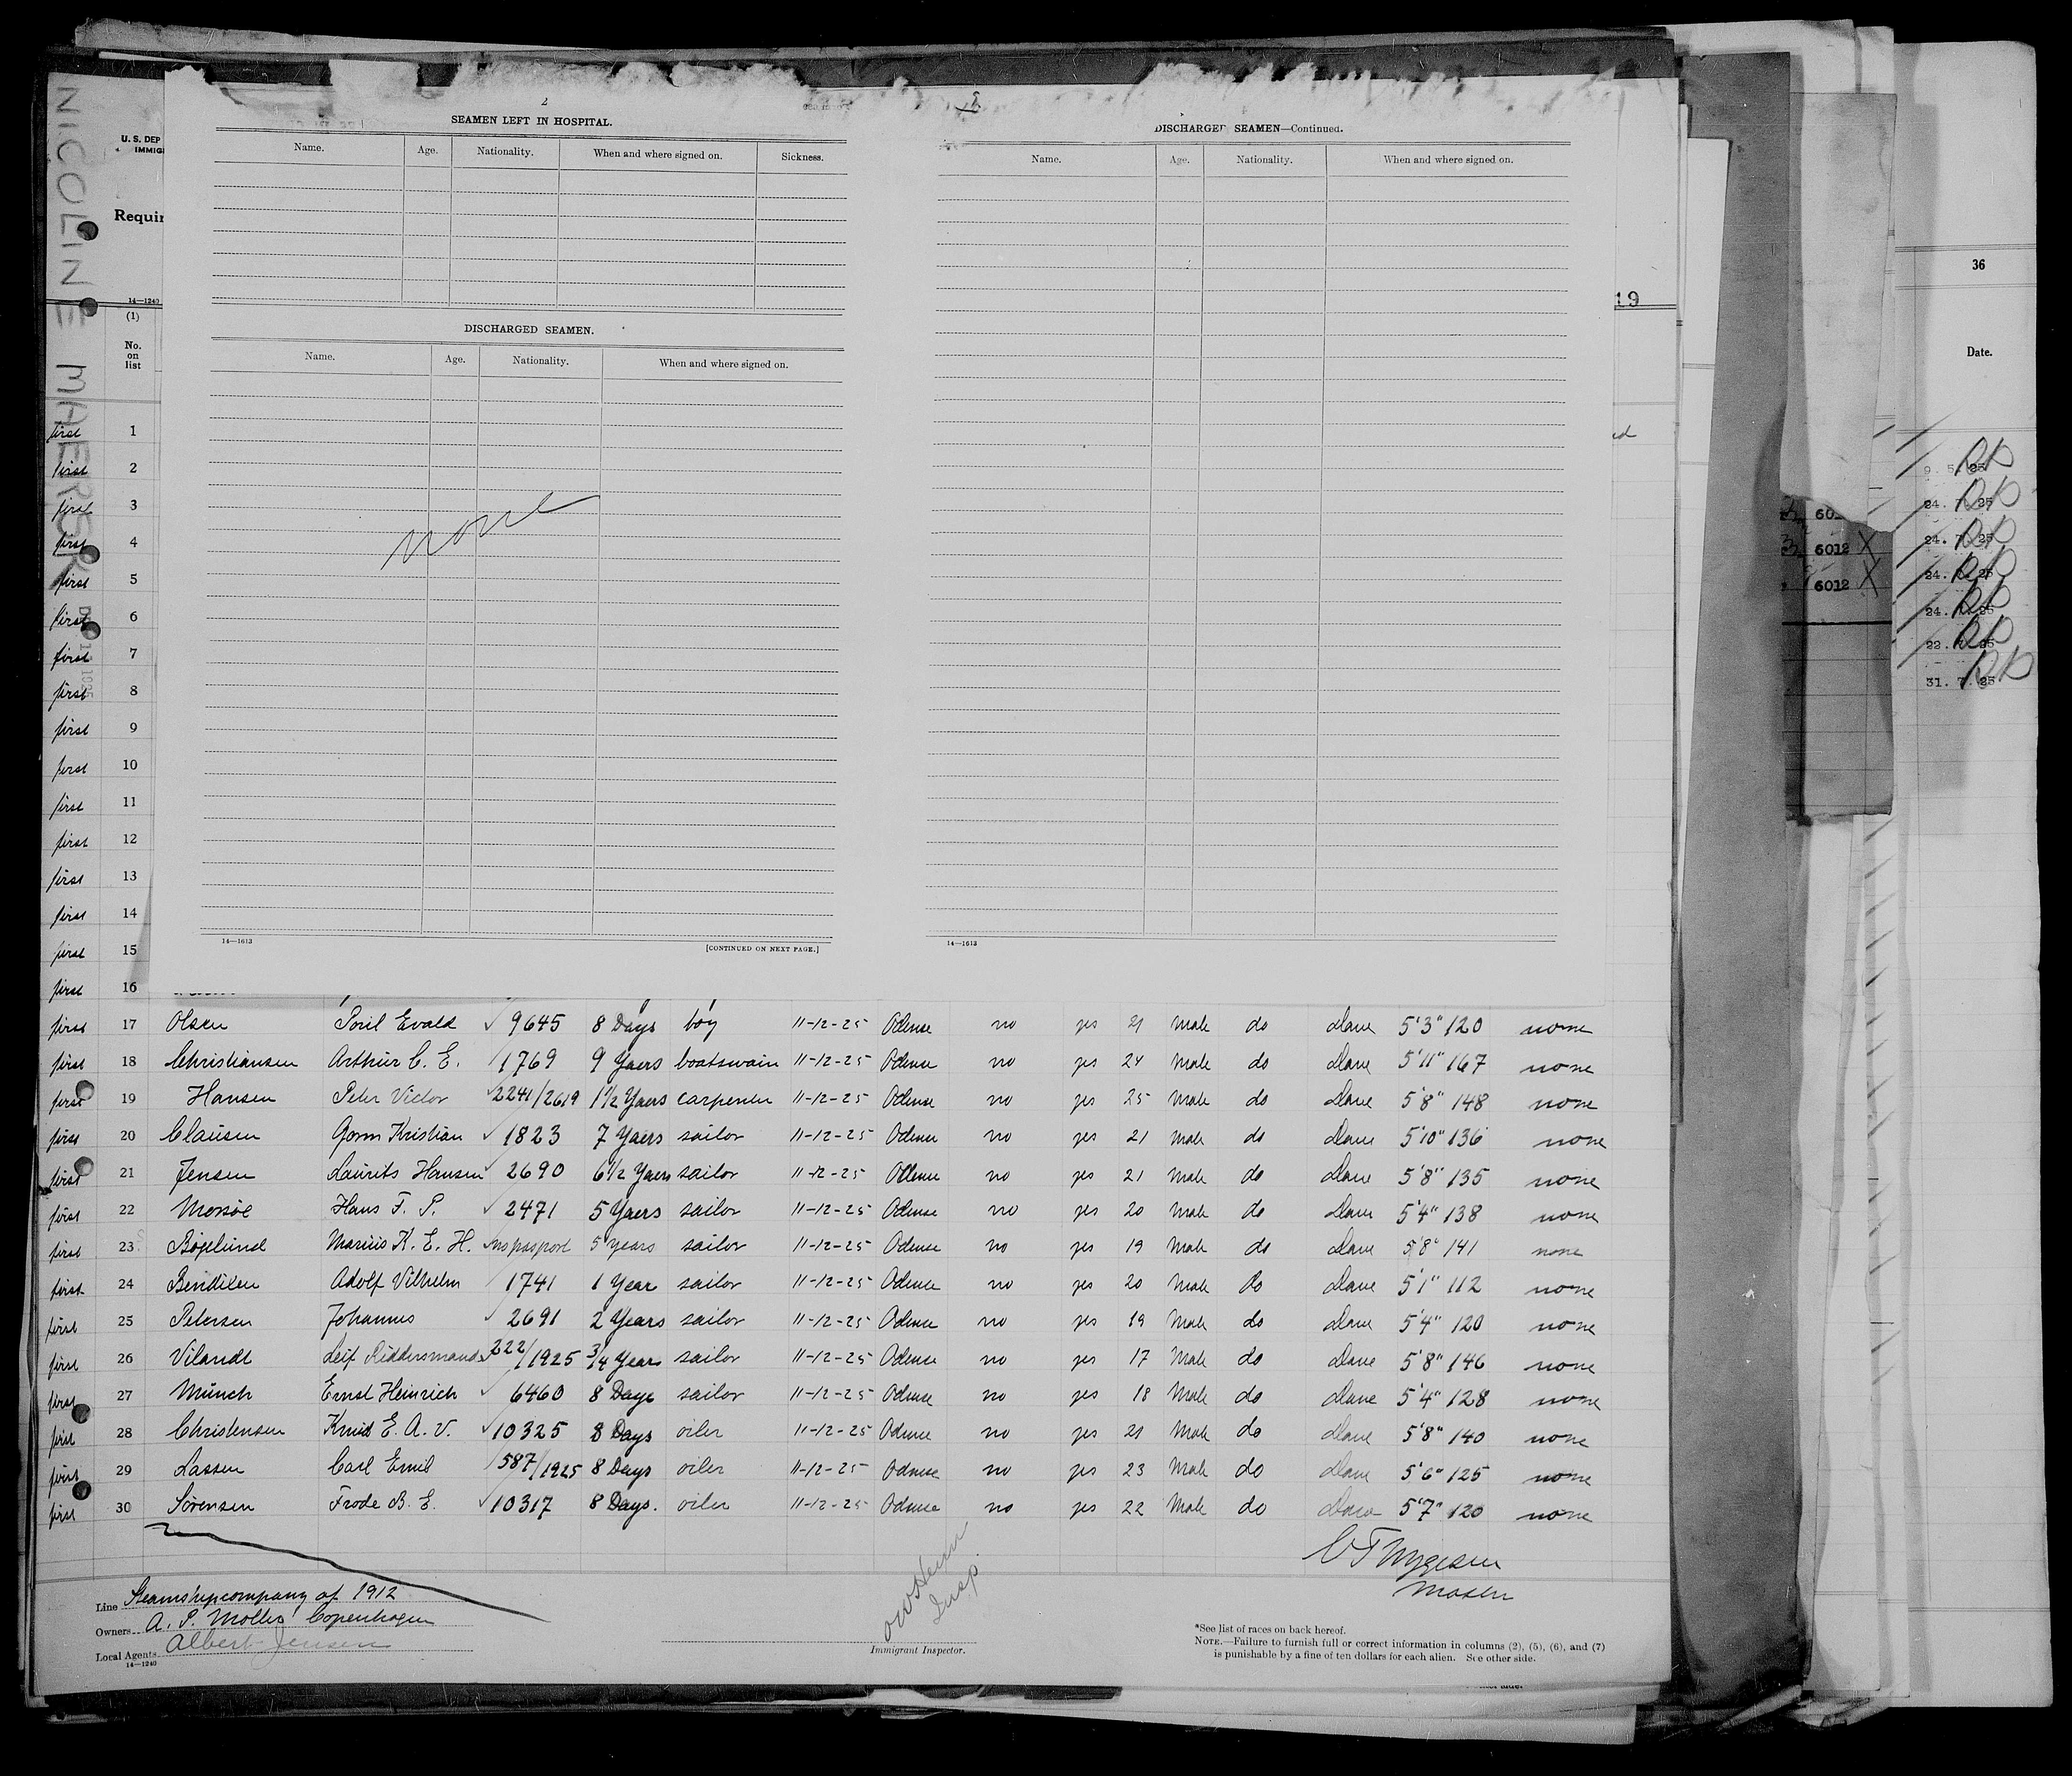 NICOLINE MAERSK
U. S. DEP
IMMIG
Requir
14—1240
(1)
No.
on
list
2
SEAMEN LEFT IN HOSPITAL.
Name. Age. Nationality. When and where signed on. Sickness.
DISCHARGED SEAMEN.
Name. Age. Nationality. When and where signed on.
none
14—1613
[CONTINUED ON NEXT PAGE.]
DISCHARGED SEAMEN—Continued.
Name. Age. Nationality. When and where signed on.
14—1613
19
36
Date.
60
6012 X
6012 X
9. 5. 25
24. 7. 25
24. 7. 25
24. 7. 25
24. 7. 25
22. 7. 25
31. 7. 25
first 1
first 2
first 3
first 4
first 5
first 6
first 7
first 8
first 9
first 10
first 11
first 12
first 13
first 14
first 15
first 16
first 17 Olsen Poul Evald 9645 8 Days boy 11-12-25 Odense no yes 21 Male do Dane 5'3" 120 none
first 18 Christiansen Arthur C. E. 1769 9 Yaers boatswain 11-12-25 Odense no yes 24 Male do Dane 5'11" 167 none
first 19 Hansen Peter Victor 2241/2619 1 1/2 Yaers carpenter 11-12-25 Odense no yes 25 Male do Dane 5'8" 148 none
first 20 Clausen Gorm Kristian 1823 7 Yaers sailor 11-12-25 Odense no yes 21 Male do Dane 5'10" 136 none
first 21 Jensen Laurits Hansen 2690 6 1/2 Yaers sailor 11-12-25 Odense no yes 21 Male do Dane 5'8" 135 none
first 22 Morsöe Hans F. P. 2471 5 Yaers sailor 11-12-25 Odense no yes 20 Male do Dane 5'4" 138 none
first 23 Bøgelund Marius K. E. H. no passport 5 years sailor 11-12-25 Odense no yes 19 Male do Dane 5'8" 141 none
first 24 Bendixen Adolf Vilhelm 1741 1 Year sailor 11-12-25 Odense no yes 20 Male do Dane 5'1" 112 none
first 25 Petersen Johannes 2691 2 Years sailor 11-12-25 Odense no yes 19 Male do Dane 5'4" 120 none
first 26 Vilandt Leif Riddersmande 222/1925 3/4 Years sailor 11-12-25 Odense no yes 17 Male do Dane 5'8" 146 none
first 27 Münch Ernst Heinrich 6460 8 Days sailor 11-12-25 Odense no yes 18 Male do Dane 5'4" 128 none
first 28 Christensen Knud E. A. V. 10325 8 Days oiler 11-12-25 Odense no yes 21 Male do Dane 5'8" 140 none
first 29 Lassen Carl Emil 587/1925 8 Days oiler 11-12-25 Odense no yes 23 Male do Dane 5'6" 125 none
first 30 Sörensen Frode B. E. 10317 8 Days. oiler 11-12-25 Odense no yes 22 Male do Dane 5'7" 120 none
Master
Line Steamshipcompany of 1912
Owners A. P. Møller Copenhagen
Local Agents Albert Jensen
14—1240
Insp
Immigrant Inspector.
*See list of races on back hereof.
NOTE.—Failure to furnish full or correct information in columns (2), (5), (6), and (7)
is punishable by a fine of ten dollars for each alien. See other side.